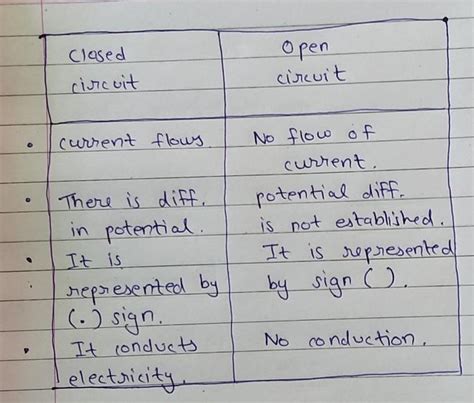 Closed circuit | Open circuit
• current flows. | No flow of current.
• There is diff. in potential. | potential diff. is not established.
• It is represented by (.) sign. | It is represented by sign ( ).
• It conducts electricity. | No conduction.